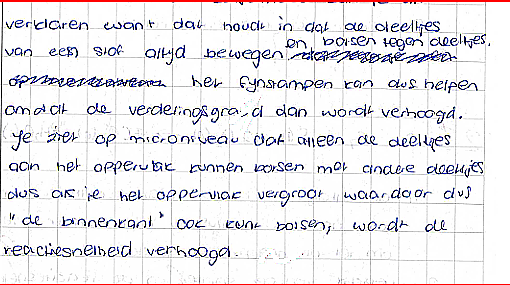 verklaren want dat houdt in dat de deeltjes
van een stof altijd bewegen en botsen tegen deeltjes.
het fijnstampen kan dus helpen
omdat de verdelingsgraad dan wordt verhoogd.
Je ziet op microniveau dat alleen de deeltjes
aan het oppervlak kunnen botsen met andere deeltjes
dus als je het oppervlak vergroot, waardoor dus
"de binnenkant" ook kunt botsen, wordt de
reactiesnelheid verhoogd.